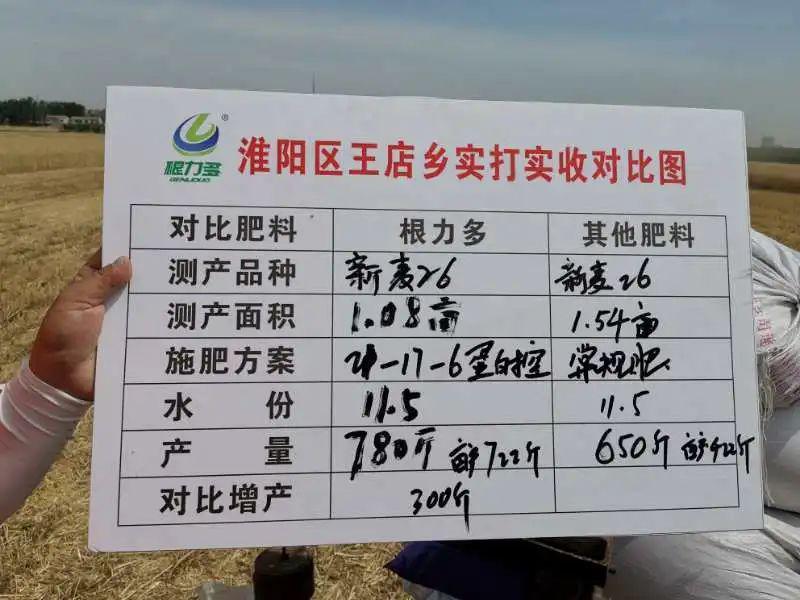 根力多
GENLIDUO
®
淮阳区王店乡实打实收对比图
对比肥料 根力多 其他肥料
测产品种 新麦26 新麦26
测产面积 1.08亩 1.54亩
施肥方案 21-17-6蛋白控 常规肥
水份 11.5 11.5
产量 780斤 亩产722斤 650斤 亩产422斤
对比增产 300斤